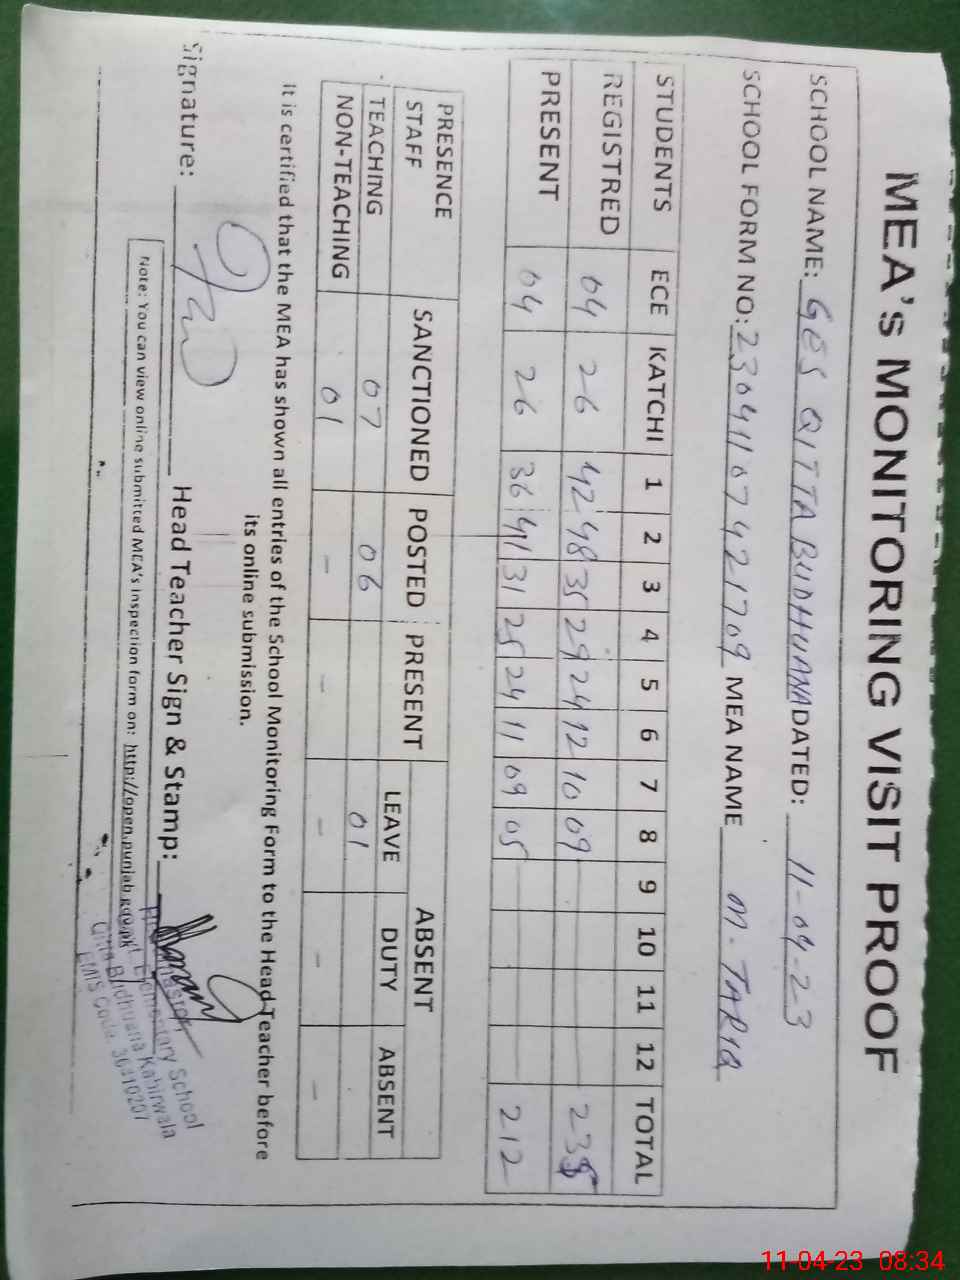 MEA's MONITORING VISIT PROOF
SCHOOL NAME: GES QITTA BUDHUANA DATED: 11-04-23
SCHOOL FORM NO: 2304110742 1709 MEA NAME M. TARIQ
STUDENTS ECE KATCHI 1 2 3 4 5 6 7 8 9 10 11 12 TOTAL
REGISTRED 04 26 42 48 35 29 24 12 10 09 238
PRESENT 04 26 36 41 31 25 24 11 09 05 212
PRESENCE STAFF SANCTIONED POSTED PRESENT ABSENT
LEAVE DUTY ABSENT
TEACHING 07 06 01
NON-TEACHING 01 - - - - -
It is certified that the MEA has shown all entries of the School Monitoring Form to the Head Teacher before
its online submission.
Signature: Head Teacher Sign & Stamp:
Headmaster
Elementary School
Qitta Budhuana Kabirwala
EMIS Code: 36410207
Note: You can view online submitted MEA's inspection form on: http://open.punjab.gov.pk
11-04-23 08:34